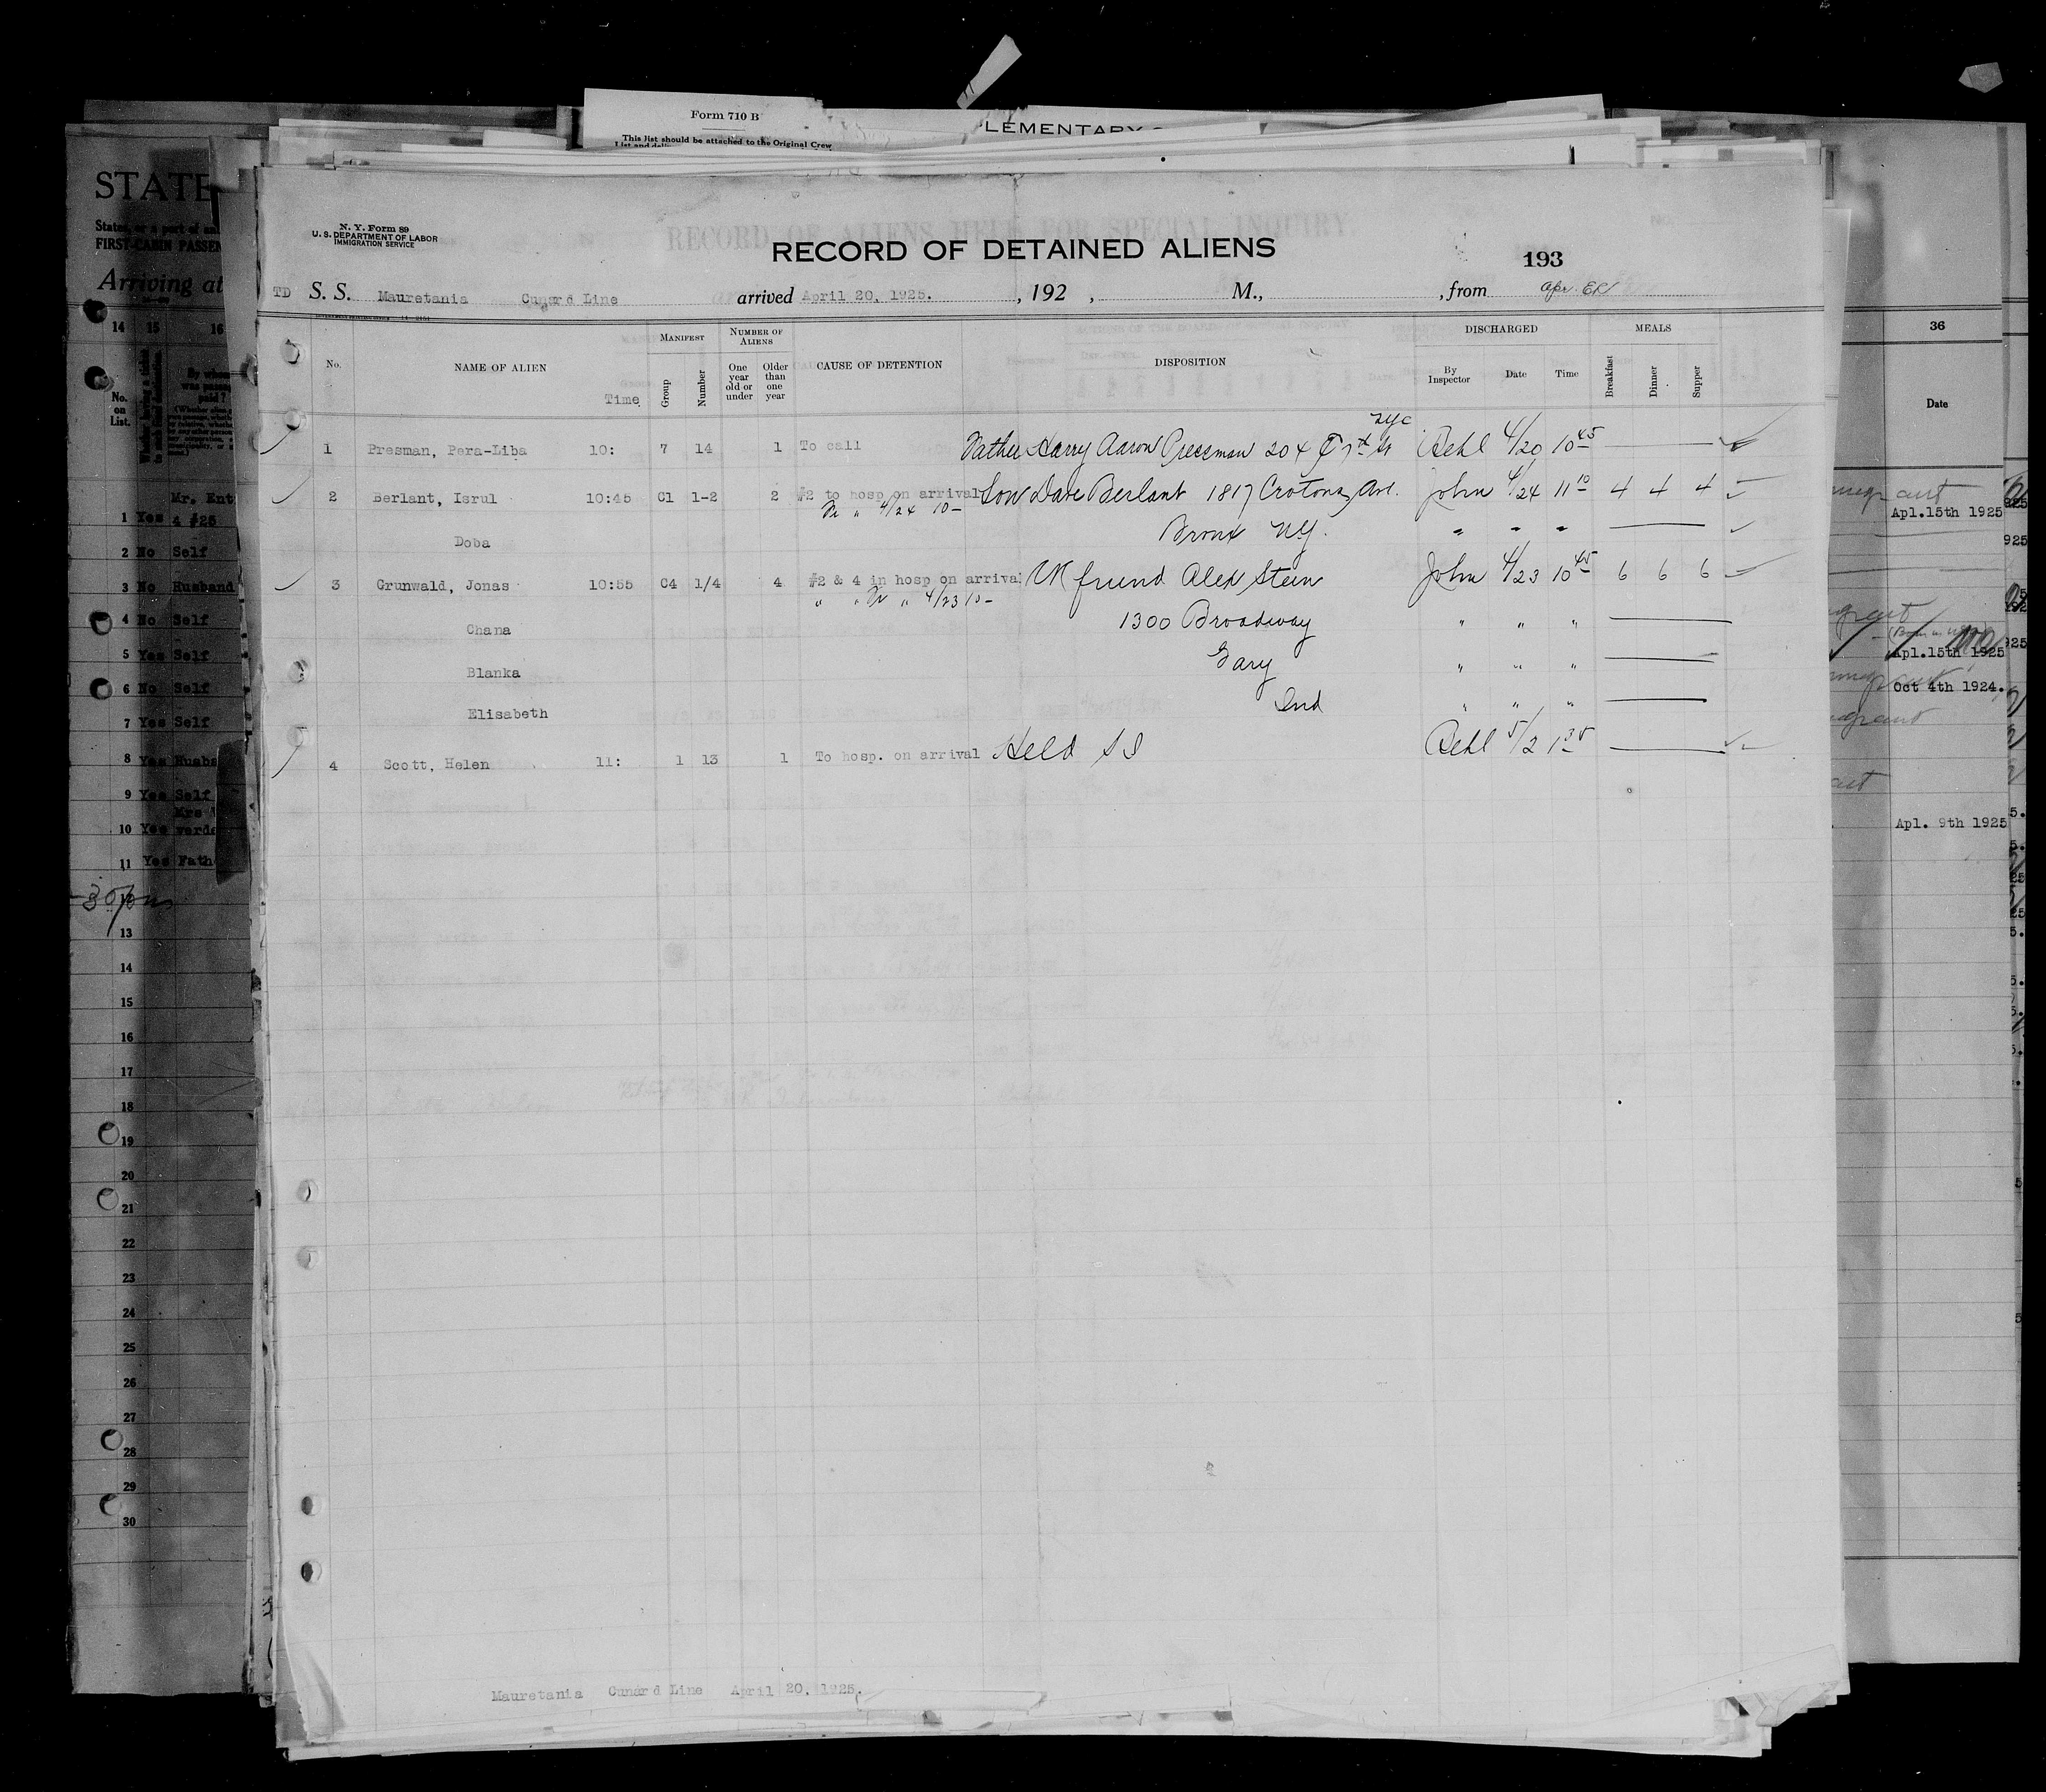 Form 710 B
LEMENTARY
This list should be attached to the Original Crew
List and
STATE
States, or a part of an
FIRST-CABIN PASSEN
Arriving at
N. Y. Form 89
U. S. DEPARTMENT OF LABOR
IMMIGRATION SERVICE
RECORD OF ALIENS HELD FOR SPECIAL INQUIRY.
RECORD OF DETAINED ALIENS
193
TD S. S. Mauretania Cunard Line arrived April 20, 1925. , 192 , M., , from
No. NAME OF ALIEN Time MANIFEST Group Number NUMBER OF ALIENS One year old or under Older than one year CAUSE OF DETENTION DISPOSITION DISCHARGED By Inspector Date Time MEALS Breakfast Dinner Supper
NYC
1 Presman, Pera-Liba 10: 7 14 1 To call Father Harry Aaron Pressman 204 E 7th St Behl 4/20 10 45
2 Berlant, Isrul 10:45 C1 1-2 2 #2 to hosp on arrival Son Dave Berlant 1817 Crotona Ave. John 4/24 11 10 4 4 4
" 4/24 10 -
Doba Bronx N.Y. " " "
3 Grunwald, Jonas 10:55 C4 1/4 4 #2 & 4 in hosp on arrival friend Alex Stein John 4/23 10 45 6 6 6
" " " 4/23 10 -
Chana 1300 Broadway " " "
Blanka Gary " " "
Elisabeth Ind " " "
4 Scott, Helen 11: 1 13 1 To hosp. on arrival Held S I Behl 5/2 1 35
Mauretania Cunard Line April 20, 1925.
14 15 16
No. on List.
By whom was passage paid?
Mr. Ent
1 Yes & #25
2 No Self
3 No Husband
4 No Self
5 Yes Self
6 No Self
7 Yes Self
8 Yes Husba
9 Yes Self
Mrs
10 Yes verde
11 Yes Fath
13
14
15
16
17
18
19
20
21
22
23
24
25
26
27
28
29
30
36
Date
Apl.15th 1925
Apl.15th 1925
Oct 4th 1924.
Apl. 9th 1925